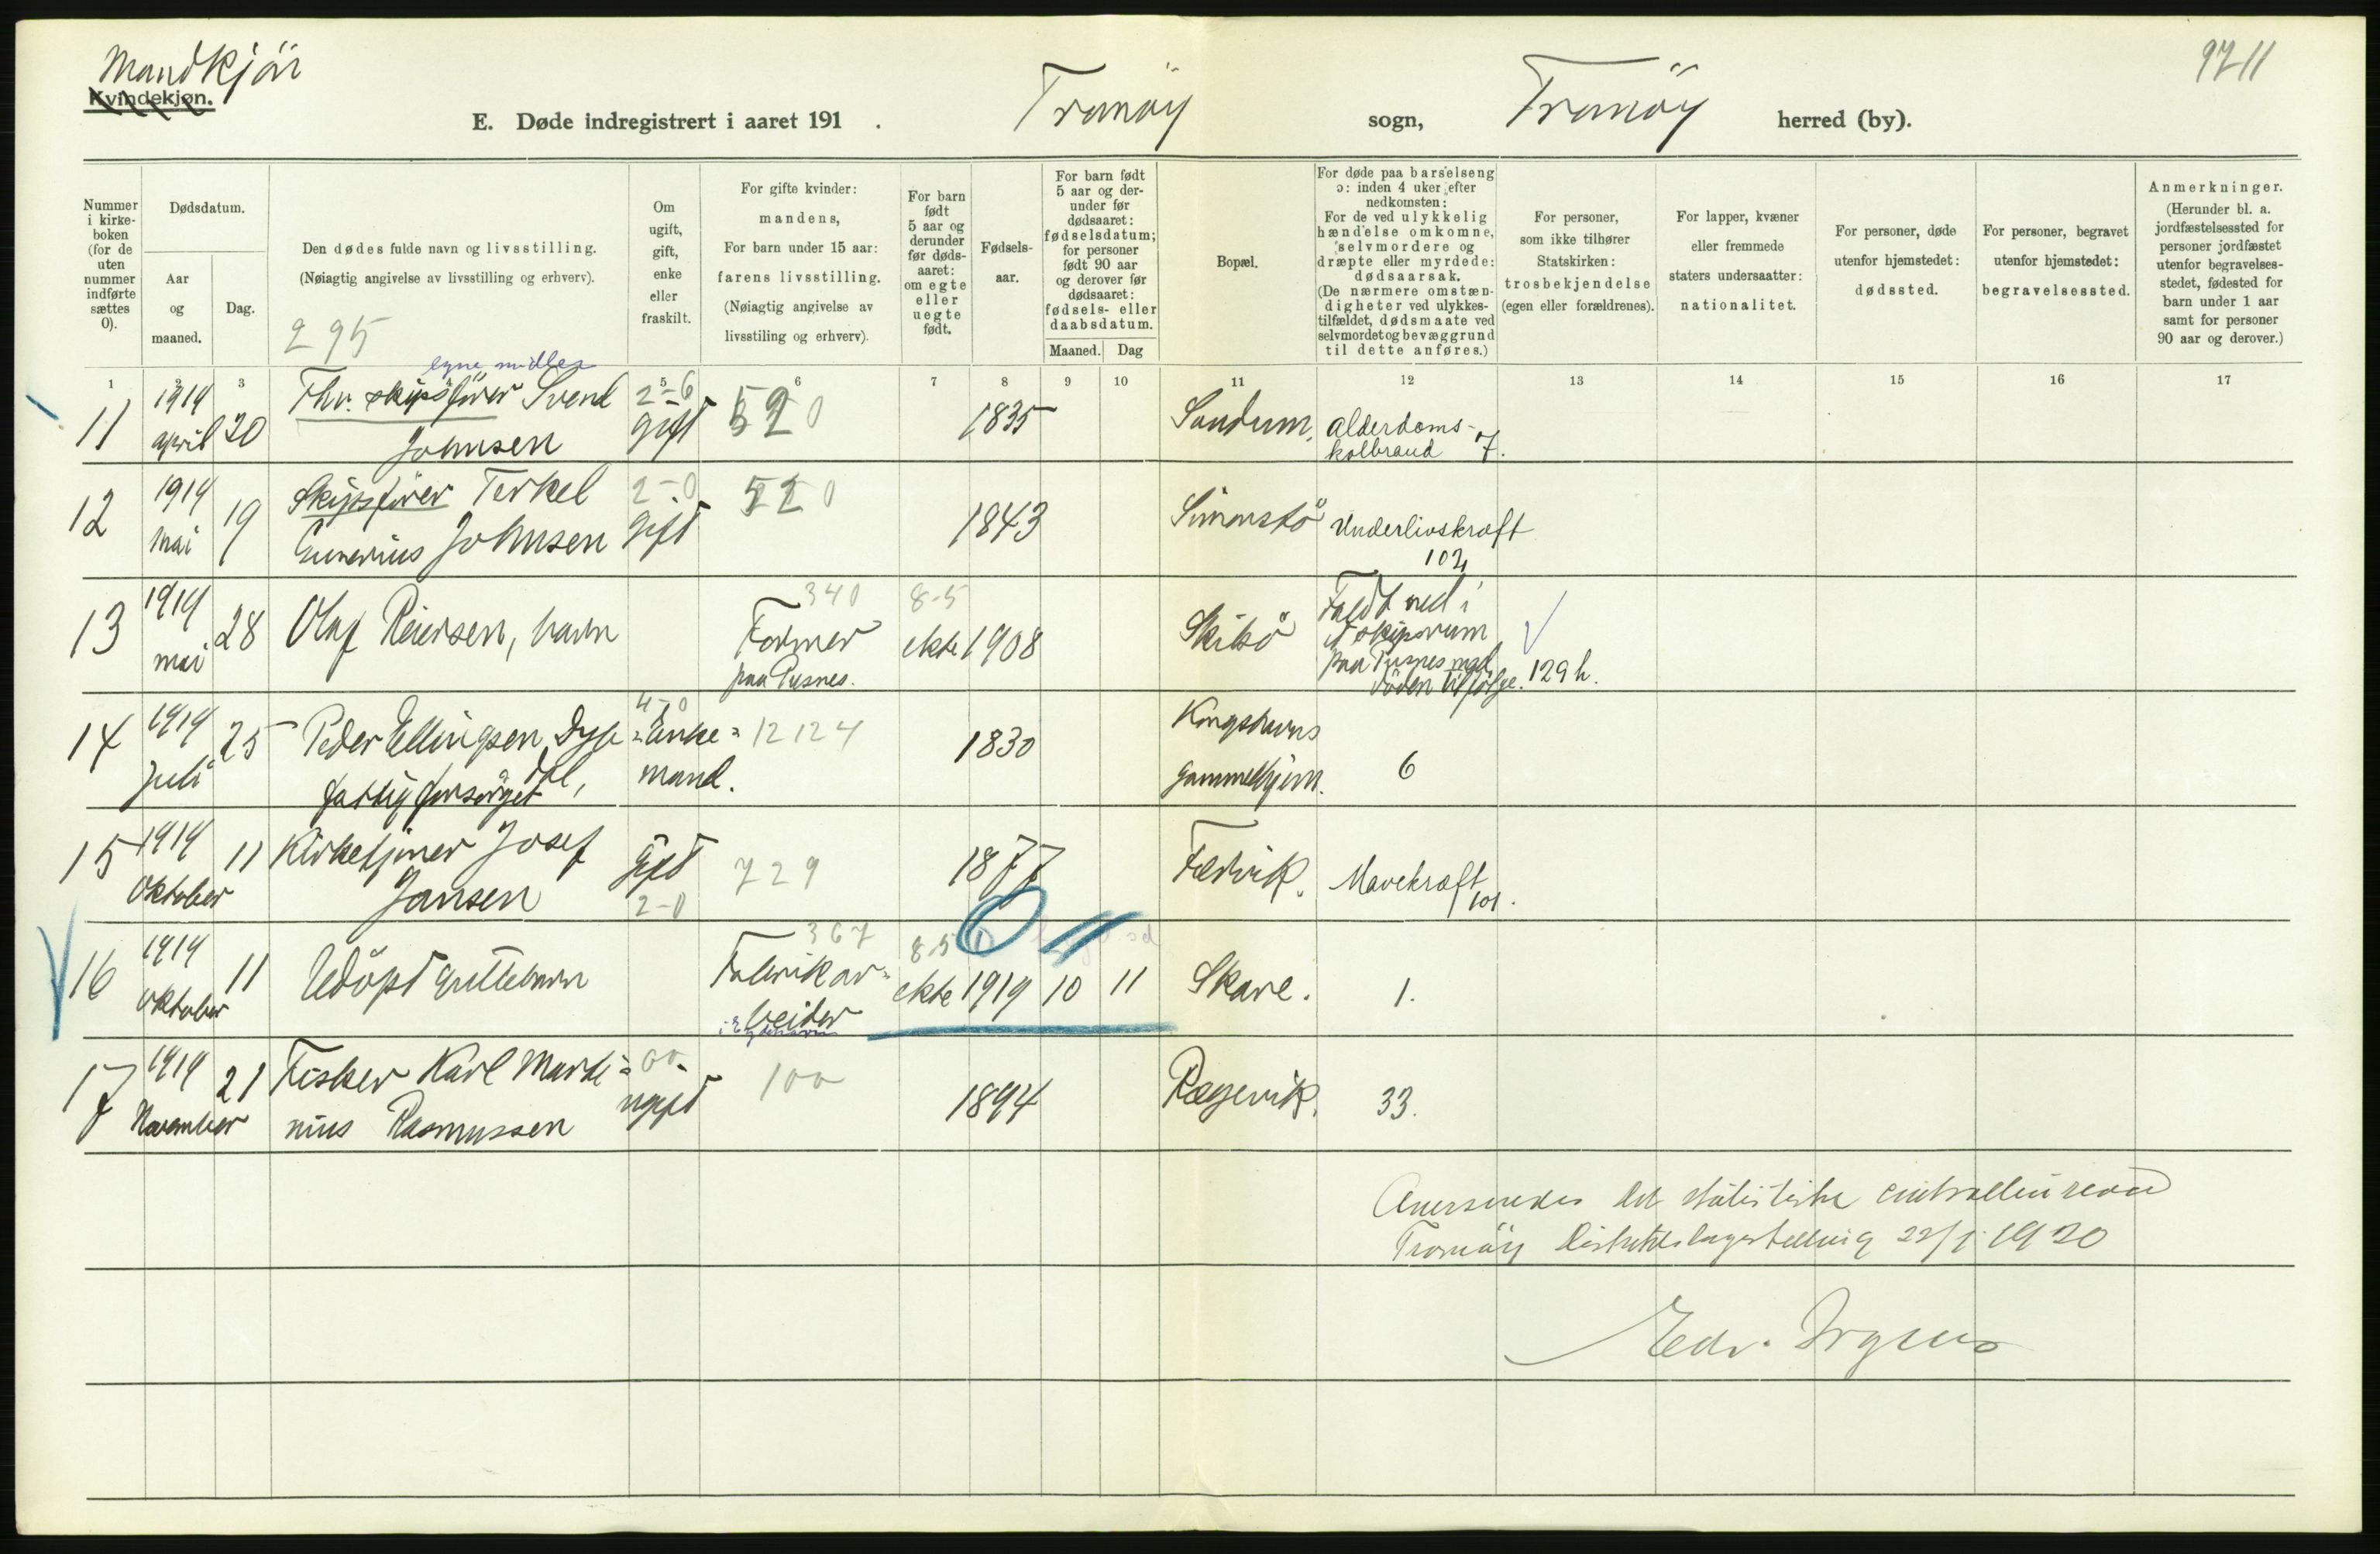 Mandkjön
Kvindekjøn.
9711
E. Døde indregistrert i aaret 191 .
Tromöy
sogn,
Tromöy
herred (by).
Nummer i kirke-boken (for de uten nummer indførte sættes 0).
Dødsdatum.
Aar og maaned.
Dag.
Den dødes fulde navn og livsstilling.
(Nøiagtig angivelse av livsstilling og erhverv).
295
Om ugift, gift, enke eller fraskilt.
For gifte kvinder:
mandens,
For barn under 15 aar:
farens livsstilling.
(Nøiagtig angivelse av
livsstiling og erhverv).
For barn født 5 aar og derunder før døds-aaret: om egte eller uegte født.
Fødsels-aar.
For barn født 5 aar og der-under før dødsaaret: fødselsdatum; for personer født 90 aar og derover før dødsaaret: fødsels- eller daabsdatum.
Maaned. Dag
Bopæl.
For døde paa barselseng
ɔ: inden 4 uker efter
nedkomsten:
For de ved ulykkelig
hændelse omkomne,
selvmordere og
dræpte eller myrdede:
dødsaarsak.
(De nærmere omstæn-
digheter ved ulykkes-
tilfældet, dødsmaate ved
selvmordet og bevæggrund
til dette anføres.)
For personer,
som ikke tilhører
Statskirken:
trosbekjendelse
(egen eller forældrenes).
For lapper, kvæner
eller fremmede
staters undersaatter:
nationalitet.
For personer, døde
utenfor hjemstedet:
dødssted.
For personer, begravet
utenfor hjemstedet:
begravelsessted.
Anmerkninger.
(Herunder bl. a.
jordfæstelsessted for
personer jordfæstet
utenfor begravelses-
stedet, fødested for
barn under 1 aar
samt for personer
90 aar og derover.)
1 2 3 5 6 7 8 9 10 11 12 13 14 15 16 17
egne midler
11 1919 april 20 Fhv. skipsförer Svend Johnsen 2-6 gift 520 1835 Sandum, alderdoms-kolbrand 7.
12 1919 mai 19 Skipsförer Terkel Gunerius Johnsen 2-0 gift 1843 Simonstö Underlivskræft 102
13 1919 mai 28 Olaf Reiersen, barn 340 Former paa Pusnes. 8-5 ekte 1908 Skilsö Faldt ned i et skipsrum paa Pusnes med döden til fölge. 129 h.
14 1919 juli 25 Peder Ellingsen Dyp-dal, fattigforsörget 4-0 Enke-mand. 12124 1830 Kongshavns gammelhjem. 6
15 1919 Oktober 11 Kirketjener Josef Jansen gift 2-0 729 1877 Færvik. Mavekræft 101.
16 1919 Oktober 11 Udöpt guttebarn 367 Fabrikar-beider i Eydehavn 8-5 ekte 1919 10 11 Skare. 1.
17 1919 November 21 Fisker Karl Marti-nius Rasmussen 00 ugift 100 1894 Rægevik. 33.
Oversendes det statistiske centralbureau
Tromöy Distriktslægestilling 22/1 1920
Edv.